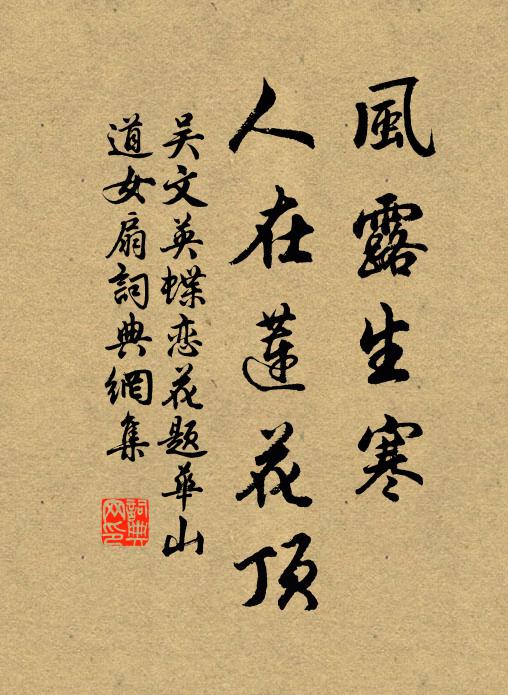 風露生寒
人在蓮花頂
吳文英蝶恋花题華山
道女扇詞典網集
詞典
网印